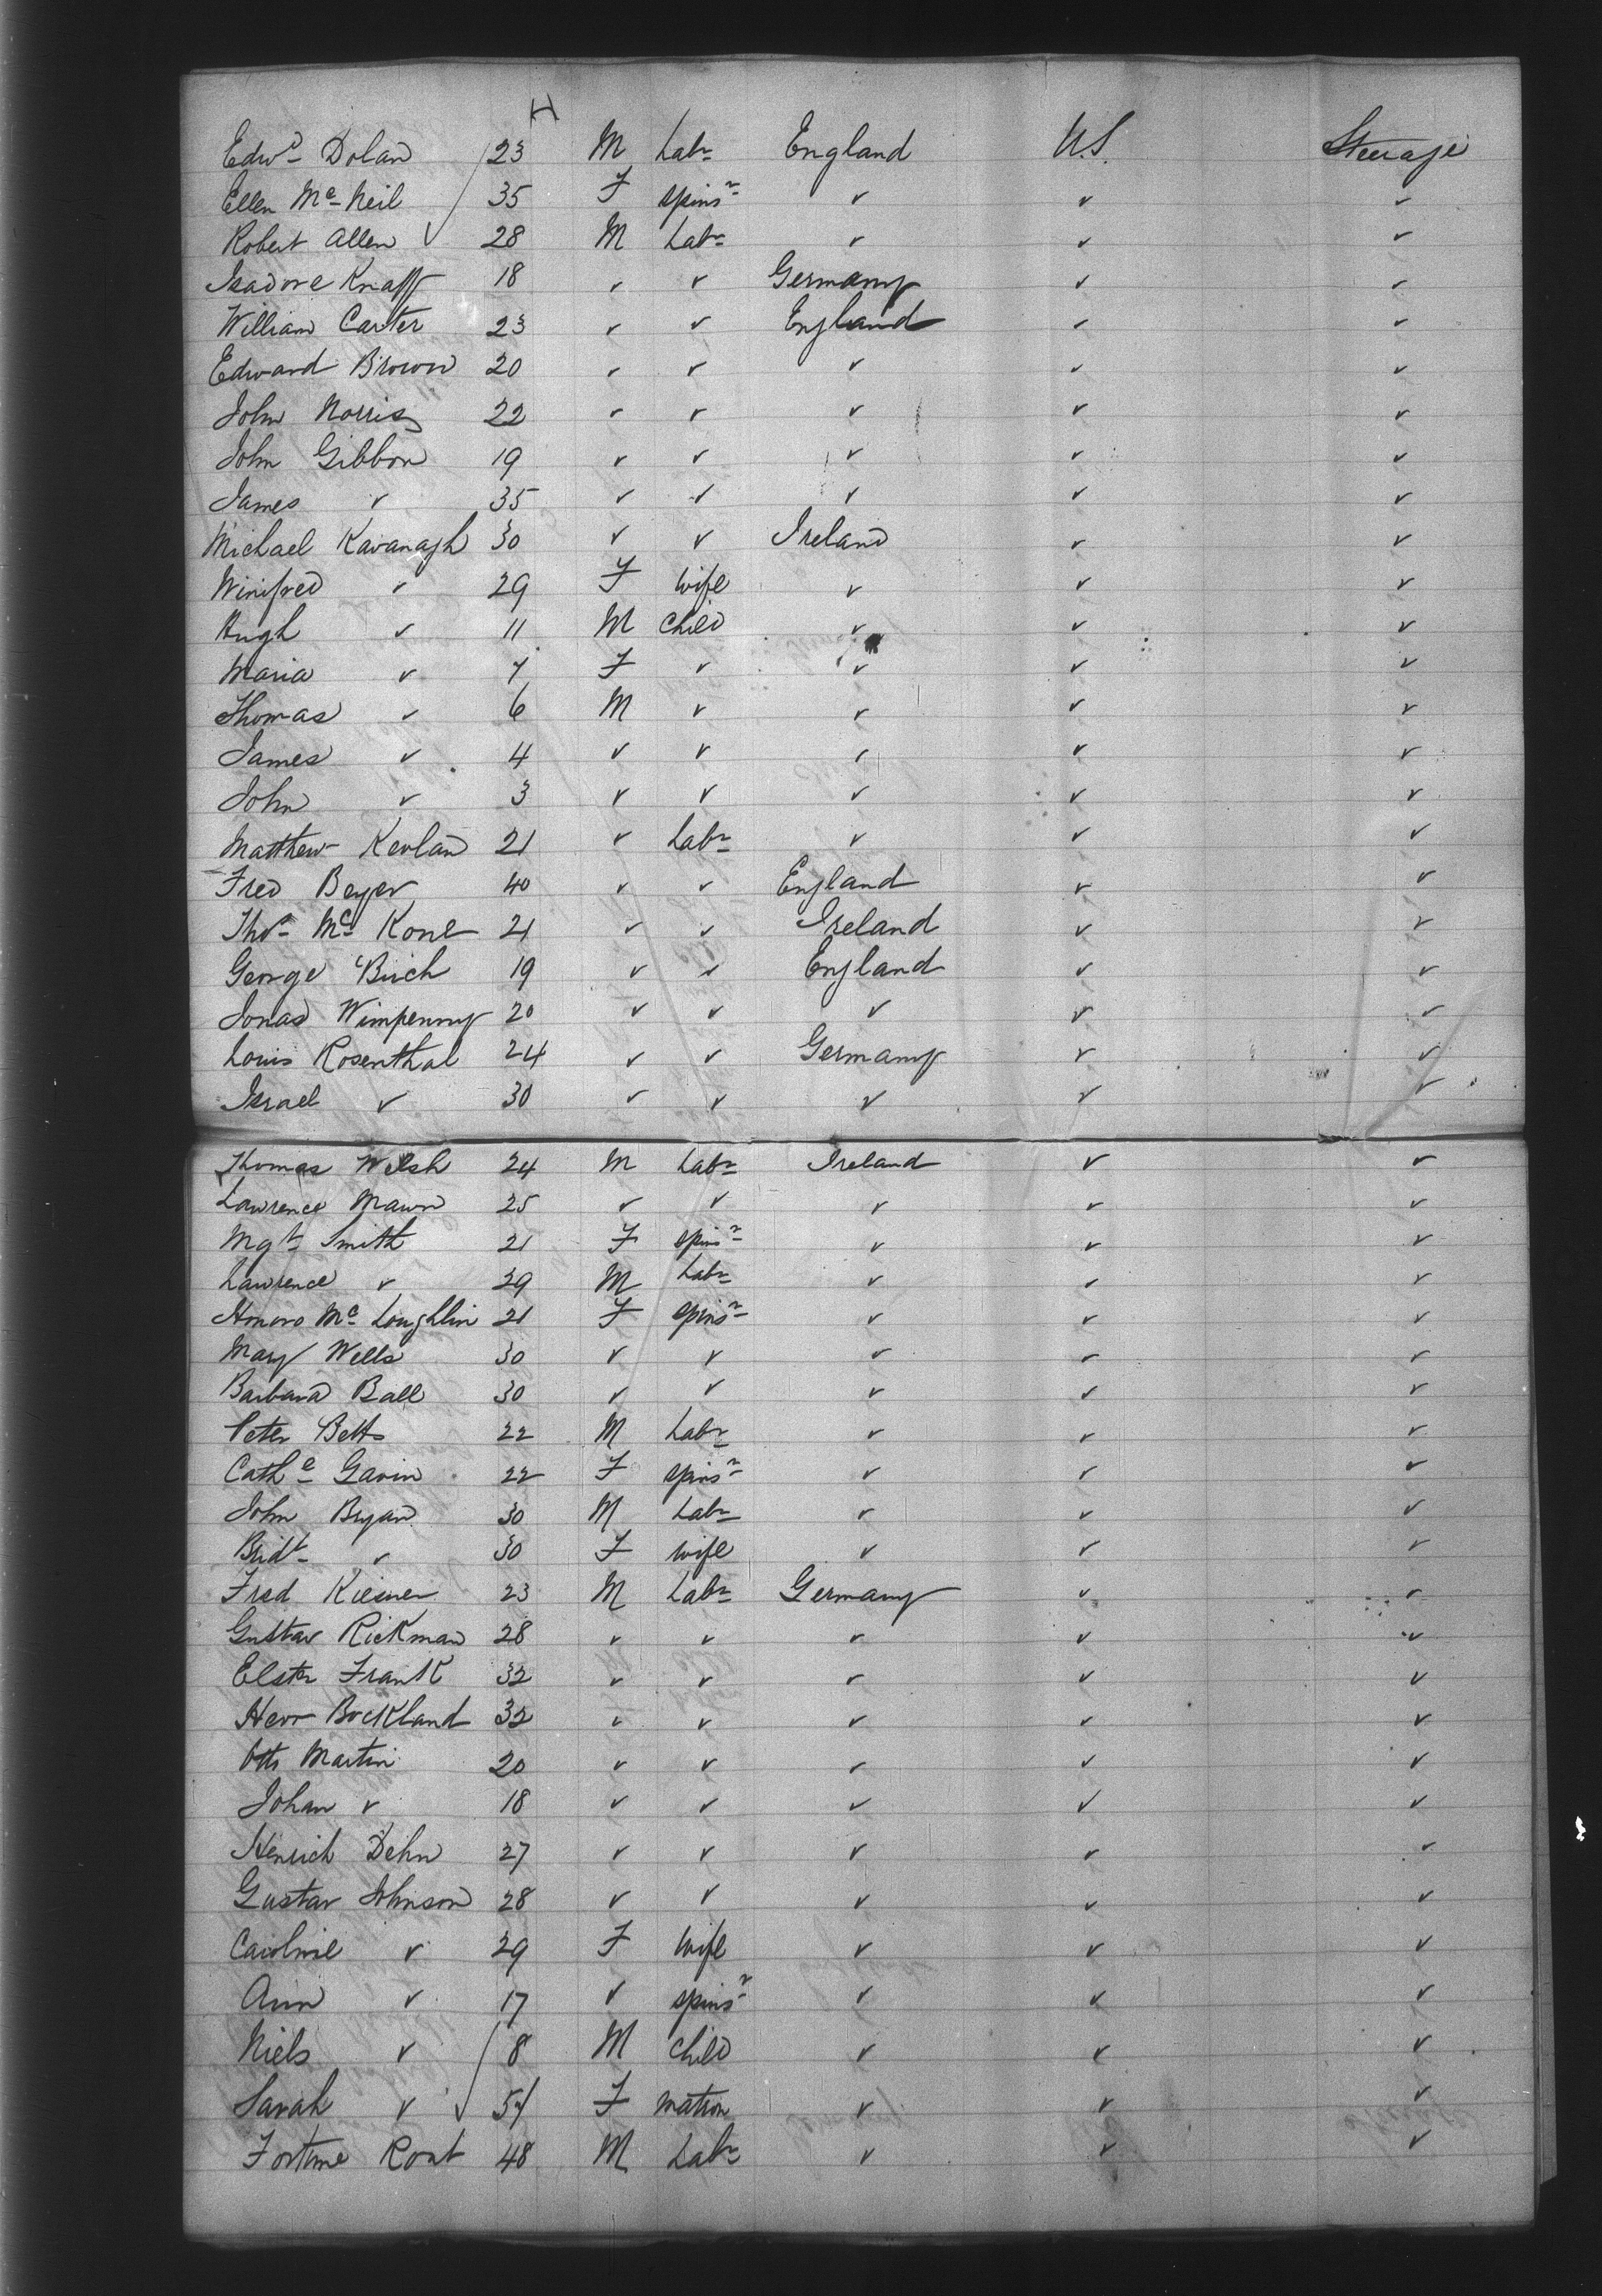 H
Edwd Dolan 23 M Labr England U.S. Steerage
Ellen Mc Neil 35 F spinsr ✓ ✓ ✓
Robert Allen 28 M Labr ✓ ✓ ✓
Isadore Knapp 18 ✓ ✓ Germany ✓ ✓
William Carter 23 ✓ ✓ England ✓ ✓
Edward Brown 20 ✓ ✓ ✓ ✓ ✓
John Norris 22 ✓ ✓ ✓ ✓ ✓
John Gibbon 19 ✓ ✓ ✓ ✓ ✓
James ✓ 35 ✓ ✓ ✓ ✓ ✓
Michael Kavanagh 30 ✓ ✓ Ireland ✓ ✓
Winifred ✓ 29 F wife ✓ ✓ ✓
Hugh ✓ 11 M child ✓ ✓ ✓
Maria ✓ 7 F ✓ ✓ ✓ ✓
Thomas ✓ 6 M ✓ ✓ ✓ ✓
James ✓ 4 ✓ ✓ ✓ ✓ ✓
John ✓ 3 ✓ ✓ ✓ ✓ ✓
Matthew Kevlan 21 ✓ Labr ✓ ✓ ✓
Fred Beyer 40 ✓ ✓ England ✓ ✓
Thos Mc Kone 21 ✓ ✓ Ireland ✓ ✓
George Birch 19 ✓ ✓ England ✓ ✓
Jonas Wimpenny 20 ✓ ✓ ✓ ✓ ✓
Louis Rosenthal 24 ✓ ✓ Germany ✓ ✓
Israel ✓ 30 ✓ ✓ ✓ ✓ ✓
Thomas Welsh 24 M Labr Ireland ✓ ✓
Lawrence Mawn 25 ✓ ✓ ✓ ✓ ✓
Mgt Smith 21 F spinsr ✓ ✓ ✓
Lawrence ✓ 29 M Labr ✓ ✓ ✓
Honoro Mc Loughlin 21 F spinsr ✓ ✓ ✓
Mary Wells 30 ✓ ✓ ✓ ✓ ✓
Barbara Ball 30 ✓ ✓ ✓ ✓ ✓
Peter Betts 22 M Labr ✓ ✓ ✓
Cathe Gavin 22 F spinsr ✓ ✓ ✓
John Bryan 30 M Labr ✓ ✓ ✓
Bridt ✓ 30 F wife ✓ ✓ ✓
Fred 23 M Labr Germany ✓ ✓
Gustav Rickman 28 ✓ ✓ ✓ ✓ ✓
Elster Frank 32 ✓ ✓ ✓ ✓ ✓
Herr Bockland 32 ✓ ✓ ✓ ✓ ✓
Otto Martin 20 ✓ ✓ ✓ ✓ ✓
Johan ✓ 18 ✓ ✓ ✓ ✓ ✓
Henrich Dehn 27 ✓ ✓ ✓ ✓ ✓
Gustav Johnson 28 ✓ ✓ ✓ ✓ ✓
Caroline ✓ 29 F wife ✓ ✓ ✓
Ann ✓ 17 ✓ spinsr ✓ ✓ ✓
Niels ✓ 8 M child ✓ ✓ ✓
Sarah ✓ 57 F matron ✓ ✓ ✓
Fortune Roat 48 M Labr ✓ ✓ ✓